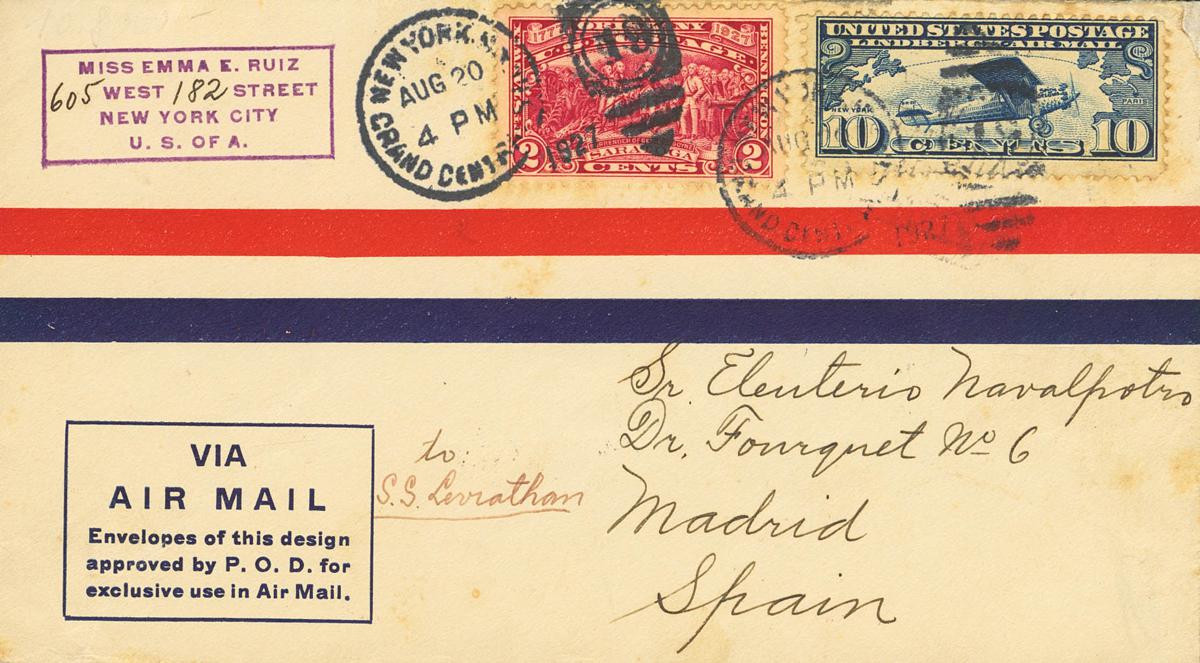 MISS EMMA E. RUIZ
605 WEST 182 STREET
NEW YORK CITY
U. S. OF A.
NEW YORK, N.Y.
AUG 20
4 PM
GRAND CENT
1927
18
1777 1927
BURGOYNE
SARATOGA
2 CENTS 2
UNITED STATES POSTAGE
LINDBERGH AIR MAIL
NEW YORK
PARIS
10 CENTS 10
AUG
4 PM
GRAND CENT
1927
Sr. Eleuterio Navalpotro
Dr. Fourquet No 6
Madrid
Spain
to
S.S. Leviathan
VIA
AIR MAIL
Envelopes of this design
approved by P. O. D. for
exclusive use in Air Mail.